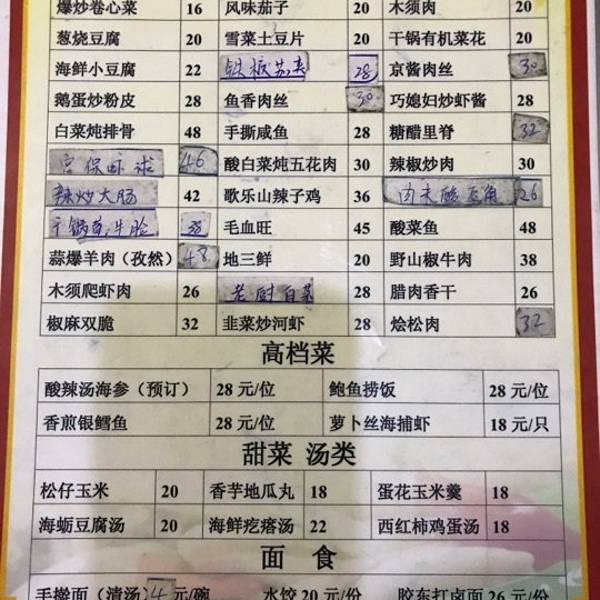 爆炒卷心菜 16 风味茄子 20 木须肉 20
葱烧豆腐 20 雪菜土豆片 20 干锅有机菜花 20
海鲜小豆腐 22 铁板茄夹 28 京酱肉丝 30
鹅蛋炒粉皮 28 鱼香肉丝 30 巧媳妇炒虾酱 28
白菜炖排骨 48 手撕咸鱼 28 糖醋里脊 32
宫保虾球 46 酸白菜炖五花肉 30 辣椒炒肉 30
辣炒大肠 42 歌乐山辣子鸡 36 肉末酸豆角 26
干锅 牛脸 毛血旺 45 酸菜鱼 48
蒜爆羊肉（孜然） 48 地三鲜 20 野山椒牛肉 38
木须爬虾肉 26 老厨白菜 28 腊肉香干 26
椒麻双脆 32 韭菜炒河虾 28 烩松肉 32
高档菜
酸辣汤海参（预订） 28 元/位 鲍鱼捞饭 28 元/位
香煎银鳕鱼 28 元/位 萝卜丝海捕虾 18 元/只
甜菜 汤类
松仔玉米 20 香芋地瓜丸 18 蛋花玉米羹 18
海蛎豆腐汤 20 海鲜疙瘩汤 22 西红柿鸡蛋汤 18
面 食
手擀面（清汤）4 元/碗 水饺 20 元/份 胶东打卤面 26 元/份